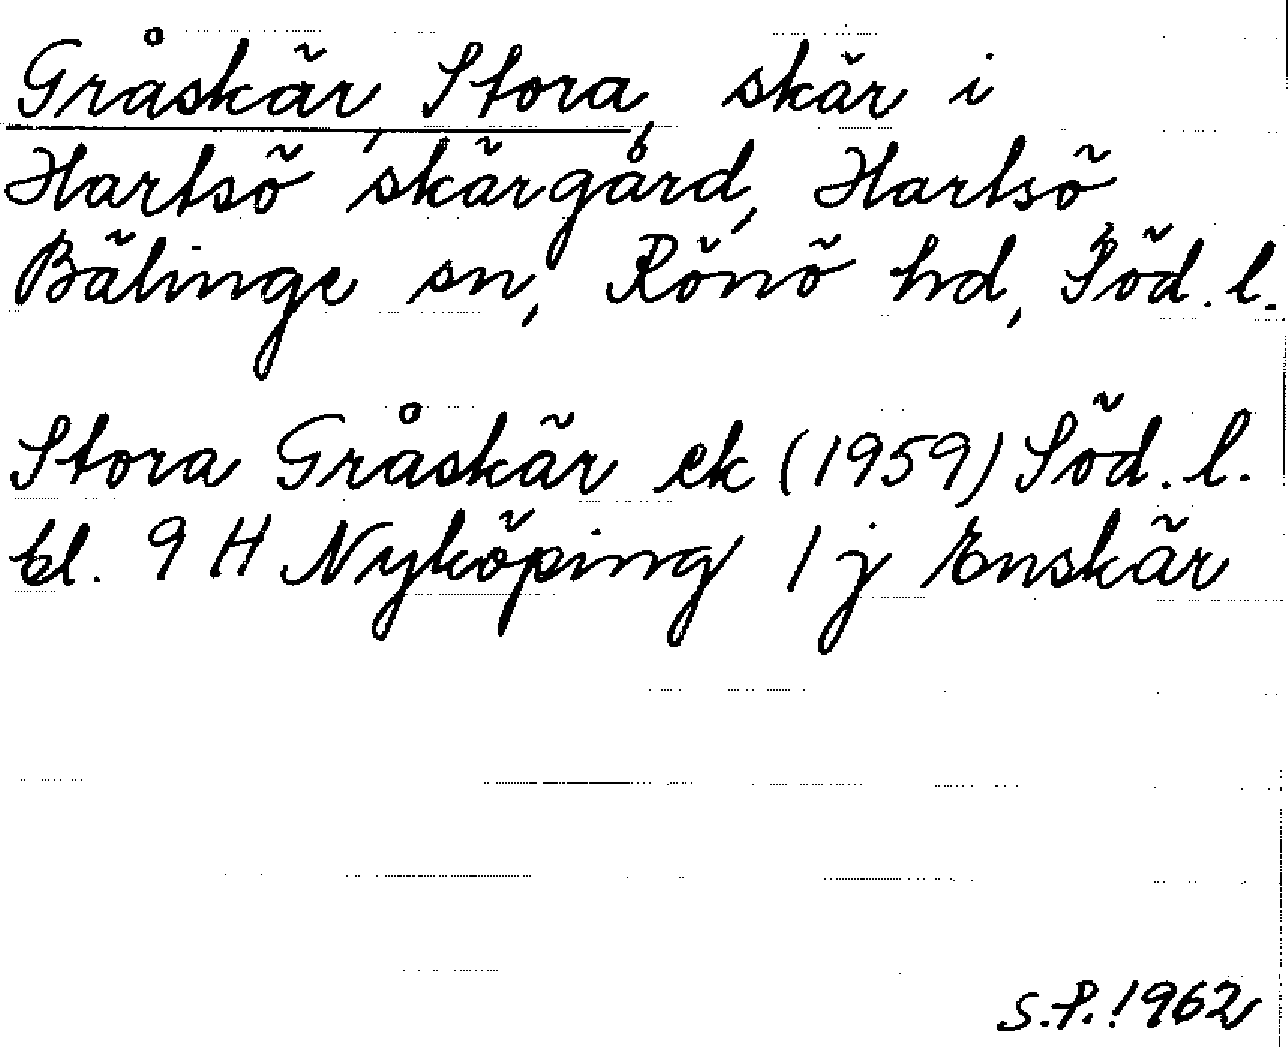 Gråskär, Stora, skär i
Hartsö skärgård, Hartsö,
Bälinge sn, Rönö hd, Söd. l.
Stora Gråskär ek (1959) Söd. l.
bl. 9 H Nyköping 1 j Enskär
S.P. 1962